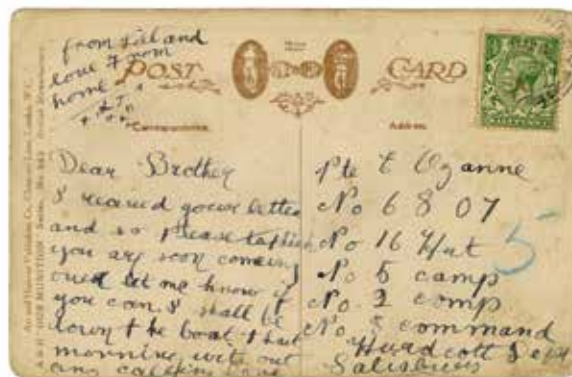 from Lil and
love from
home
POST CARD
Correspondence
Address
Dear Brother
I recived your letter
and so please to think
you are soon coming
over let me know if
you can I shall be
down the boat that
morning
Pte E Ozanne
No 6807
No 16 Hut
No 5 camp
No 2 comp
No 3 command
Hurdcott
Salisbury
5